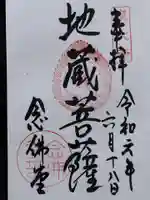 奉拝
令和元年
六月十八日
地蔵菩薩
念佛堂